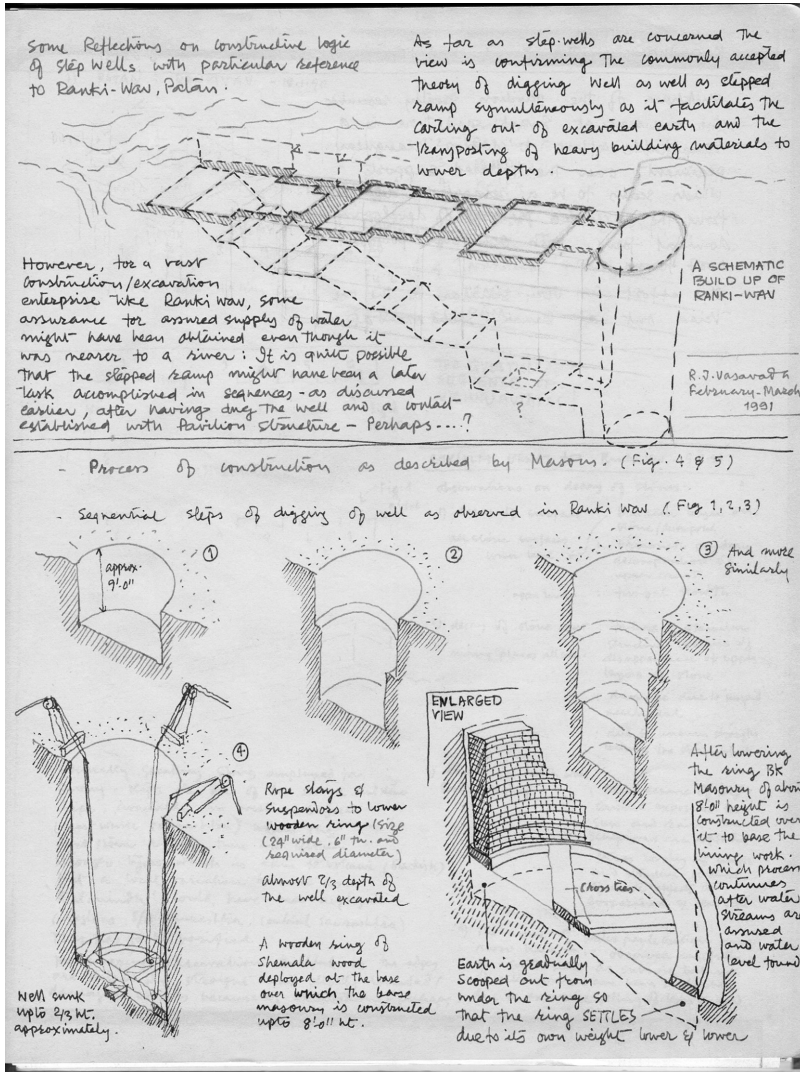 Some Reflections on constructive logic
of Step Wells with particular reference
to Ranki-Wav, Patan.
As far as step-wells are concerned the
view is confirming the commonly accepted
theory of digging well as well as stepped
ramp symultaneously as it facilitates the
carting out of excavated earth and the
transporting of heavy building materials to
lower depths.
However, for a vast
construction/excavation
enterprise like Ranki wav, some
assurance for assured supply of water
might have been obtained even though it
was nearer to a river: It is quite possible
that the stepped ramp might have been a later
task accomplished in sequences - as discussed
earlier, after having dug the well and a contact
established with Pavilion structure - Perhaps....?
?
A SCHEMATIC
BUILD UP OF
RANKI-WAV
R.J. Vasavada
February-March
1991
- Process of construction as described by Masons. (Fig. 4 & 5)
- Sequential steps of digging of well as observed in Ranki wav (Fig 1,2,3)
1
approx.
9'-0"
2
3
And more
similarly
4.
Rope stays &
suspendors to lower
wooden ring (size
(24" wide. 6" th. and
required diameter)
almost 2/3 depth of
the well excavated
A wooden ring of
Shemala wood
deployed at the base
over which the base
masonry is constructed
upto 8'0" ht.
Well sunk
upto 2/3 ht.
approximately.
ENLARGED
VIEW
Cross ties
Earth is gradually
scooped out from
under the ring so
that the ring SETTLES
due to its own weight lower & lower
After lowering
the ring BK
Masonry of about
8'0" height is
constructed over
it to base the
lining work.
which process
continues
after water
streams are
assured
and water
level found